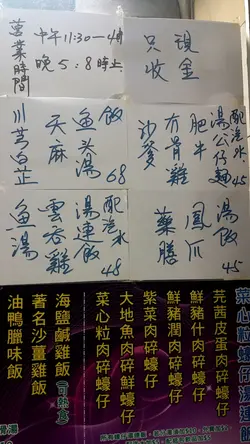 營業時間
中午11:30—4時
晚5:8時止
只收
現金
川芎白芷
天麻
鱼头湯
飯
68
沙爹
冇骨雞
肥牛
湯公仔麵
配汽水
45
鱼湯
雲吞雞
湯連飯
配汽水
48
藥膳
鳳爪
45
芫茜皮蛋肉碎蠔仔
鮮豬什肉碎蠔仔
鮮豬潤肉碎蠔仔
紫菜肉碎蠔仔
大地魚肉碎鮮蠔仔
菜心粒肉碎蠔仔
海鹽鹹雞飯
著名沙薑雞飯
油鴨臘味飯